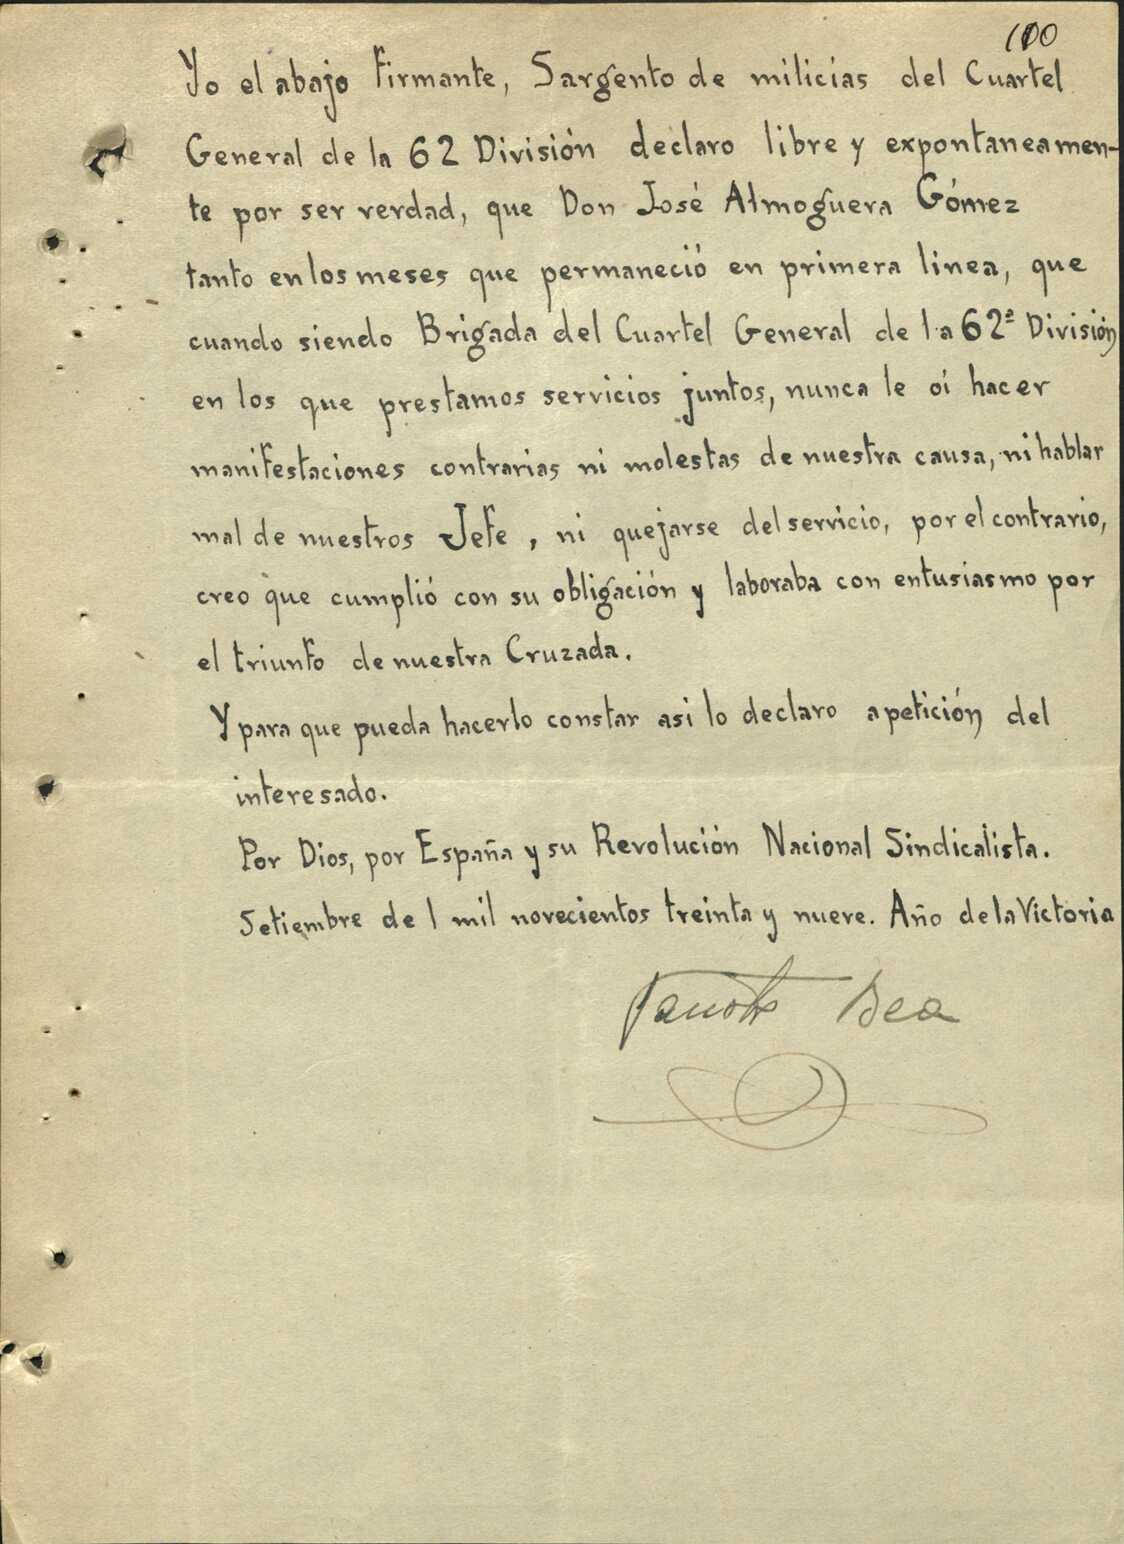 100
Yo el abajo firmante, Sargento de milicias del Cuartel
General de la 62 División declaro libre y expontaneamen-
te por ser verdad, que Don José Almoguera Gómez
tanto en los meses que permaneció en primera linea, que
cuando siendo Brigada del Cuartel General de la 62ª División
en los que prestamos servicios juntos, nunca le oí hacer
manifestaciones contrarias ni molestas de nuestra causa, ni hablar
mal de nuestros Jefe, ni quejarse del servicio, por el contrario,
creo que cumplió con su obligación y laboraba con entusiasmo por
el triunfo de nuestra Cruzada.
Y para que pueda hacerlo constar asi lo declaro a petición del
interesado.
Por Dios, por España y su Revolución Nacional Sindicalista.
Setiembre de 1 mil novecientos treinta y nueve. Año de la Victoria
Fausto Bea